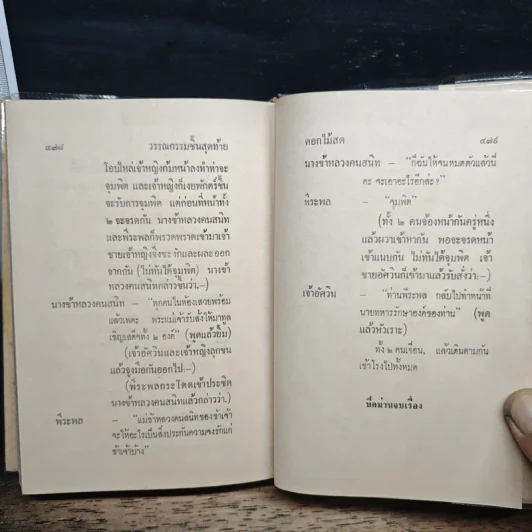 ๔๗๘ วรรณกรรมชิ้นสุดท้าย
โอบไหล่เจ้าหญิงก้มหน้าลงทำท่าจะ
จุมพิต และเจ้าหญิงก็เงยพักตร์ขึ้น
จะรับการจุมพิต แต่ก่อนที่หน้าทั้ง
๒ จะจรดกัน นางข้าหลวงคนสนิท
และพิระพลก็พรวดพราดเข้ามาเจ้า
ชายเจ้าหญิงจึงชะงักและผละออก
จากกัน (ไม่ทันได้จุมพิต) นางข้า
หลวงคนสนิทกล่าวขึ้นว่า.—)
นางข้าหลวงคนสนิท — "ทุกคนในห้องเสวยพร้อม
แล้วเพคะ พระแม่เจ้ารับสั่งให้มาทูล
เชิญเสด็จทั้ง ๒ องค์" (พูดแล้วยิ้ม)
(เจ้าอัศวินและเจ้าหญิงลุกขึ้น
แล้วจูงมือกันออกไป.—)
(พิระพลกระโดดเข้าประชิด
นางข้าหลวงคนสนิทแล้วกล่าวว่า.)
พิระพล — "แม่ข้าหลวงคนสนิทของข้าเจ้า
จะให้อะไรเป็นสิ่งประกันความจงรักแก่
ข้าเจ้าบ้าง"
ดอกไม้สด ๔๗๙
นางข้าหลวงคนสนิท — "ก็ฉันให้จนหมดตัวแล้วนี่
คะ จะเอาอะไรอีกล่ะ?"
พิระพล — "จุมพิต"
(ทั้ง ๒ คนจ้องหน้ากันครู่หนึ่ง
แล้วผวาเข้าหากัน พอจะจรดหน้า
เข้าแนบกัน ไม่ทันได้จุมพิต เจ้า
ชายอัศวินก็เข้ามาแล้วรับสั่งว่า:—)
เจ้าอัศวิน — "ท่านพิระพล กลับไปทำหน้าที่
นายทหารรักษาองค์ของท่าน" (พูด
แล้วหัวเราะ)
ทั้ง ๒ คนเขื่อน, แล้วเดินตามกัน
เข้าโรงไปทั้งหมด
ปิดม่านจบเรื่อง